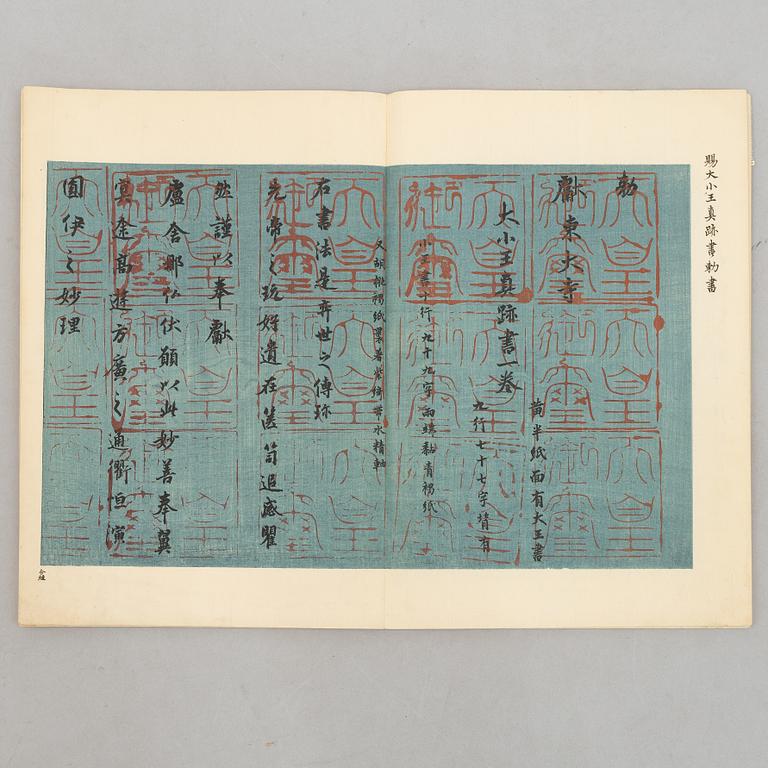 賜大小王真跡書勅書
勅
獻東大寺
大小王真跡書一巻
黄半紙面有大王書
九行七十七字背有
小王書十行九十九字兩端黏青褐紙
又胡桃褐紙裏著紫綺帶水精軸
右書法是弈世之傳珎
先帝之玩好遺在篋笥追感瞿
然謹以奉獻
盧舎那仏伏願以此妙善奉翼
冥途高遊方廣之通衢恒演
圓伊之妙理
天皇御璽